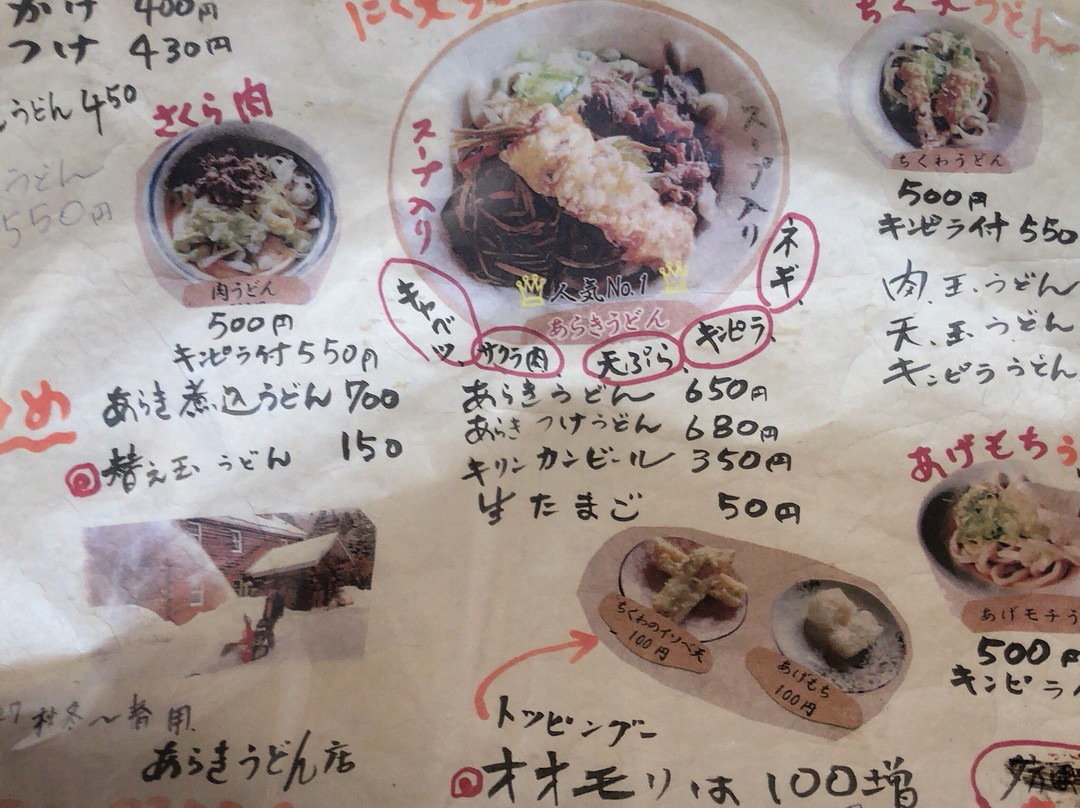 かけ 400円
つけ 430円
うどん 450
うどん
550円
さくら肉
肉うどん
500円
キンピラ付 550円
あらき煮込うどん 700
替え玉うどん 150
スープ入り
スープ入り
人気No.1
あらきうどん
キャベツ
サクラ肉
天ぷら
キンピラ
ネギ
あらきうどん 650円
あらきつけうどん 680円
キリンカンビール 350円
生たまご 50円
うどん
ちくわうどん
500円
キンピラ付 550
肉、玉、うどん
天、玉、うどん
キンピラうどん
あげもちう
あげモチう
500円
キンピラ
ちくわのイソベ天
100円
あげもち
100円
トッピング
オオモリは 100増
あらきうどん店